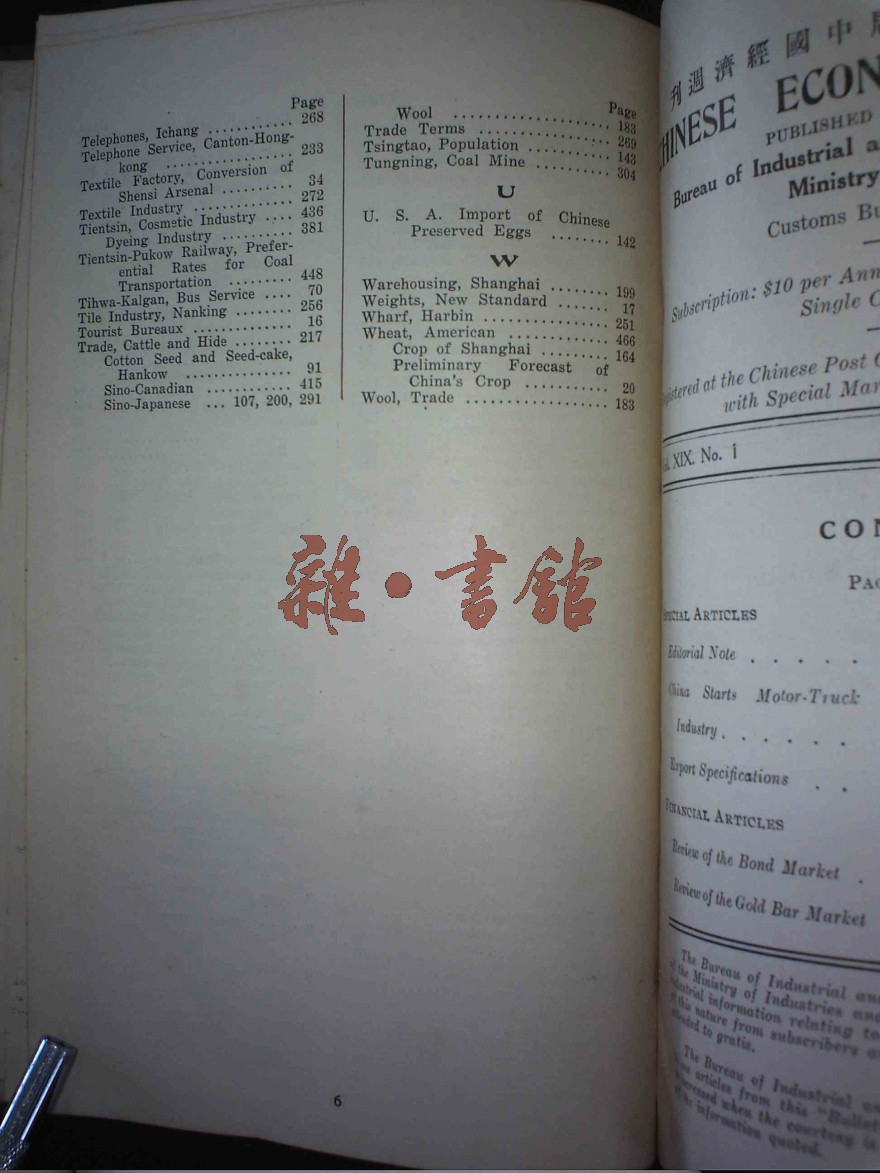 Page
Telephones, Ichang ............ 268
Telephone Service, Canton-Hong-
kong .................. 233
Textile Factory, Conversion of
Shensi Arsenal .......... 34
Textile Industry .............. 272
Tientsin, Cosmetic Industry .... 436
Dyeing Industry .......... 381
Tientsin-Pukow Railway, Prefer-
ential Rates for Coal
Transportation ......... 448
Tihwa-Kalgan, Bus Service .... 70
Tile Industry, Nanking ........ 256
Tourist Bureaux .............. 16
Trade, Cattle and Hide ........ 217
Cotton Seed and Seed-cake,
Hankow ............... 91
Sino-Canadian ............ 415
Sino-Japanese ... 107, 200, 291
Page
Wool .................... 183
Trade Terms ................. 269
Tsingtao, Population .......... 143
Tungning, Coal Mine .......... 304
U
U. S. A. Import of Chinese
Preserved Eggs ........ 142
W
Warehousing, Shanghai ........ 199
Weights, New Standard ....... 17
Wharf, Harbin ................ 251
Wheat, American ............. 466
Crop of Shanghai ......... 164
Preliminary Forecast of
China's Crop ........... 20
Wool, Trade .................. 183
雜·書館
6
刊週濟經國中
CHINESE ECON
PUBLISHED
Bureau of Industrial a
Ministry
Customs Bu
Subscription: $10 per Ann
Single C
at the Chinese Post
with Special Mar
XIX. No. 1
CON
PAG
ARTICLES
Editorial Note . . . . .
China Starts Motor-Truck
Industry . . . . . .
Export Specifications . .
ARTICLES
Review of the Bond Market .
Review of the Gold Bar Market
The Bureau of Industrial an
of the Ministry of Industries an
information relating to
this nature from subscribers a
to gratis.
The Bureau of Industrial a
articles from this "Bulle
when the courtesy is
information quoted.